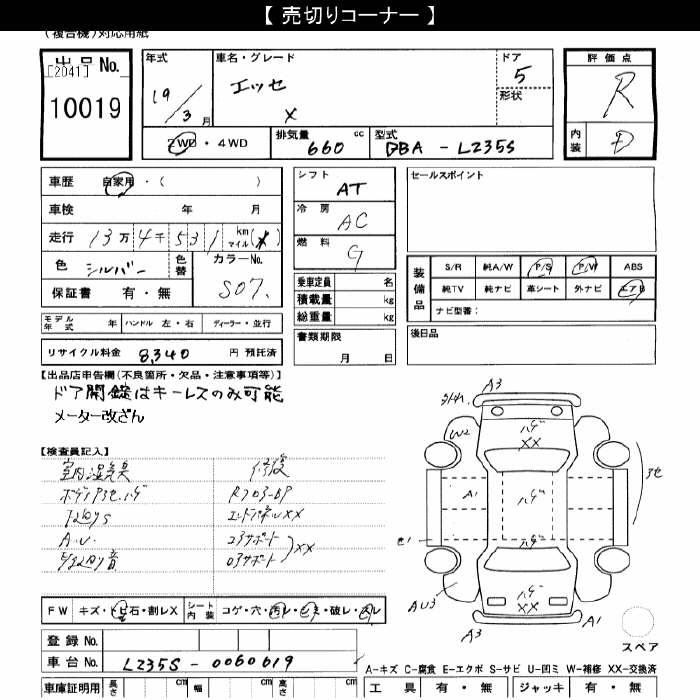 【 売切りコーナー 】
(複合機)対応用紙
出品No.
[2041]
10019
年式
19/3月
車名・グレード
エッセ
X
ドア
5
形状
評価点
R
内装
D
2WD・4WD
排気量 cc
660
型式
DBA - L235S
車歴 自家用・( )
車検 年 月
走行 13万4千531 km マイル(*)
色 シルバー
色替
カラーNo.
S07.
保証書 有・無
シフト
AT
冷房
AC
燃料
G
乗車定員 名
積載量 kg
総重量 kg
セールスポイント
装備品
S/R 純A/W P/S P/W ABS
純TV 純ナビ 革シート 外ナビ エアB
ナビ型番:
モデル年式 年 ハンドル 左・右 ディーラー・並行
リサイクル料金 8,340 円 預託済
書類期限
月 日
後日品
【出品店申告欄(不良箇所・欠品・注意事項等)】
ドア開錠はキーレスのみ可能
メーター改ざん
【検査員記入】
室内湿気臭 修復
ボディP3セ.ハゲ
A.U.
エンドパネルXX
コアサポート
XX
A3
W2
ハゲ
XX
A1
ハゲ
ハゲ
ハゲ
XX
AU3
A3
A1
スペア
FW キズ・トビ石・割レX
シート内装 コゲ・穴・汚レ・シミ・破レ・スレ
登録No.
車台No. L235S - 0060619
A-キズ C-腐食 E-エクボ S-サビ U-凹ミ W-補修 XX-交換済
車庫証明用 長さ cm 幅 cm 高さ cm
工具 有・無 ジャッキ 有・無